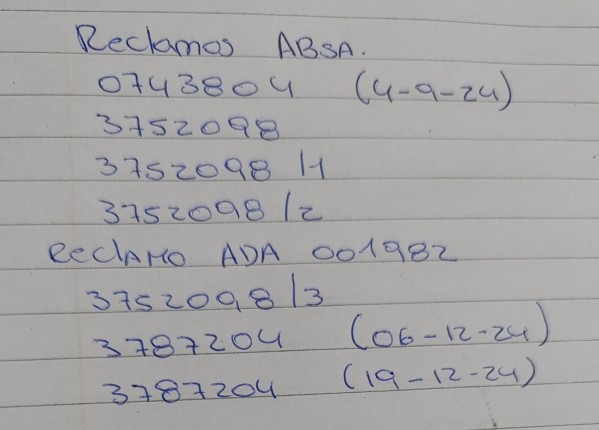 Reclamos ABSA.
0743804 (4-9-24)
3752098
3752098/1
3752098/2
Reclamo ADA 001982
3752098/3
3787204 (06-12-24)
3787204 (19-12-24)